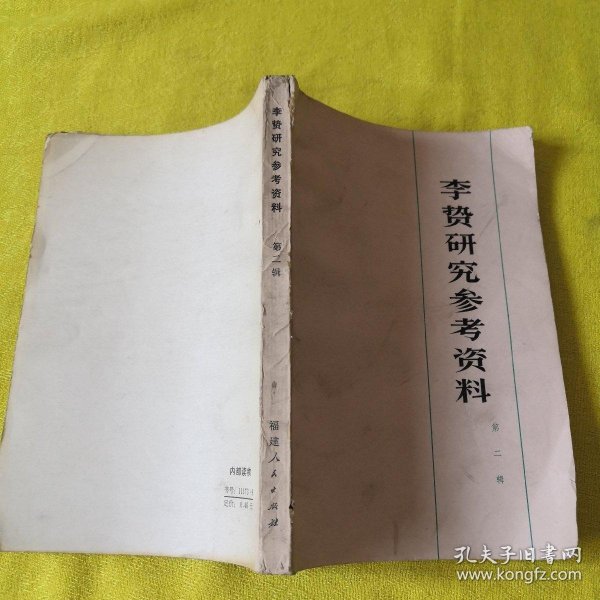 李贽研究参考资料
第二辑
李贽研究参考资料
第二辑
福建人民出版社
内部读物
孔夫子旧书网
www.kongfz.com